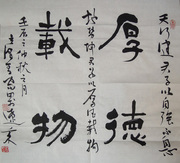 天行健君子以自强不息
厚德
地势坤君子以厚德载物
載物
壬辰之仲秋之月